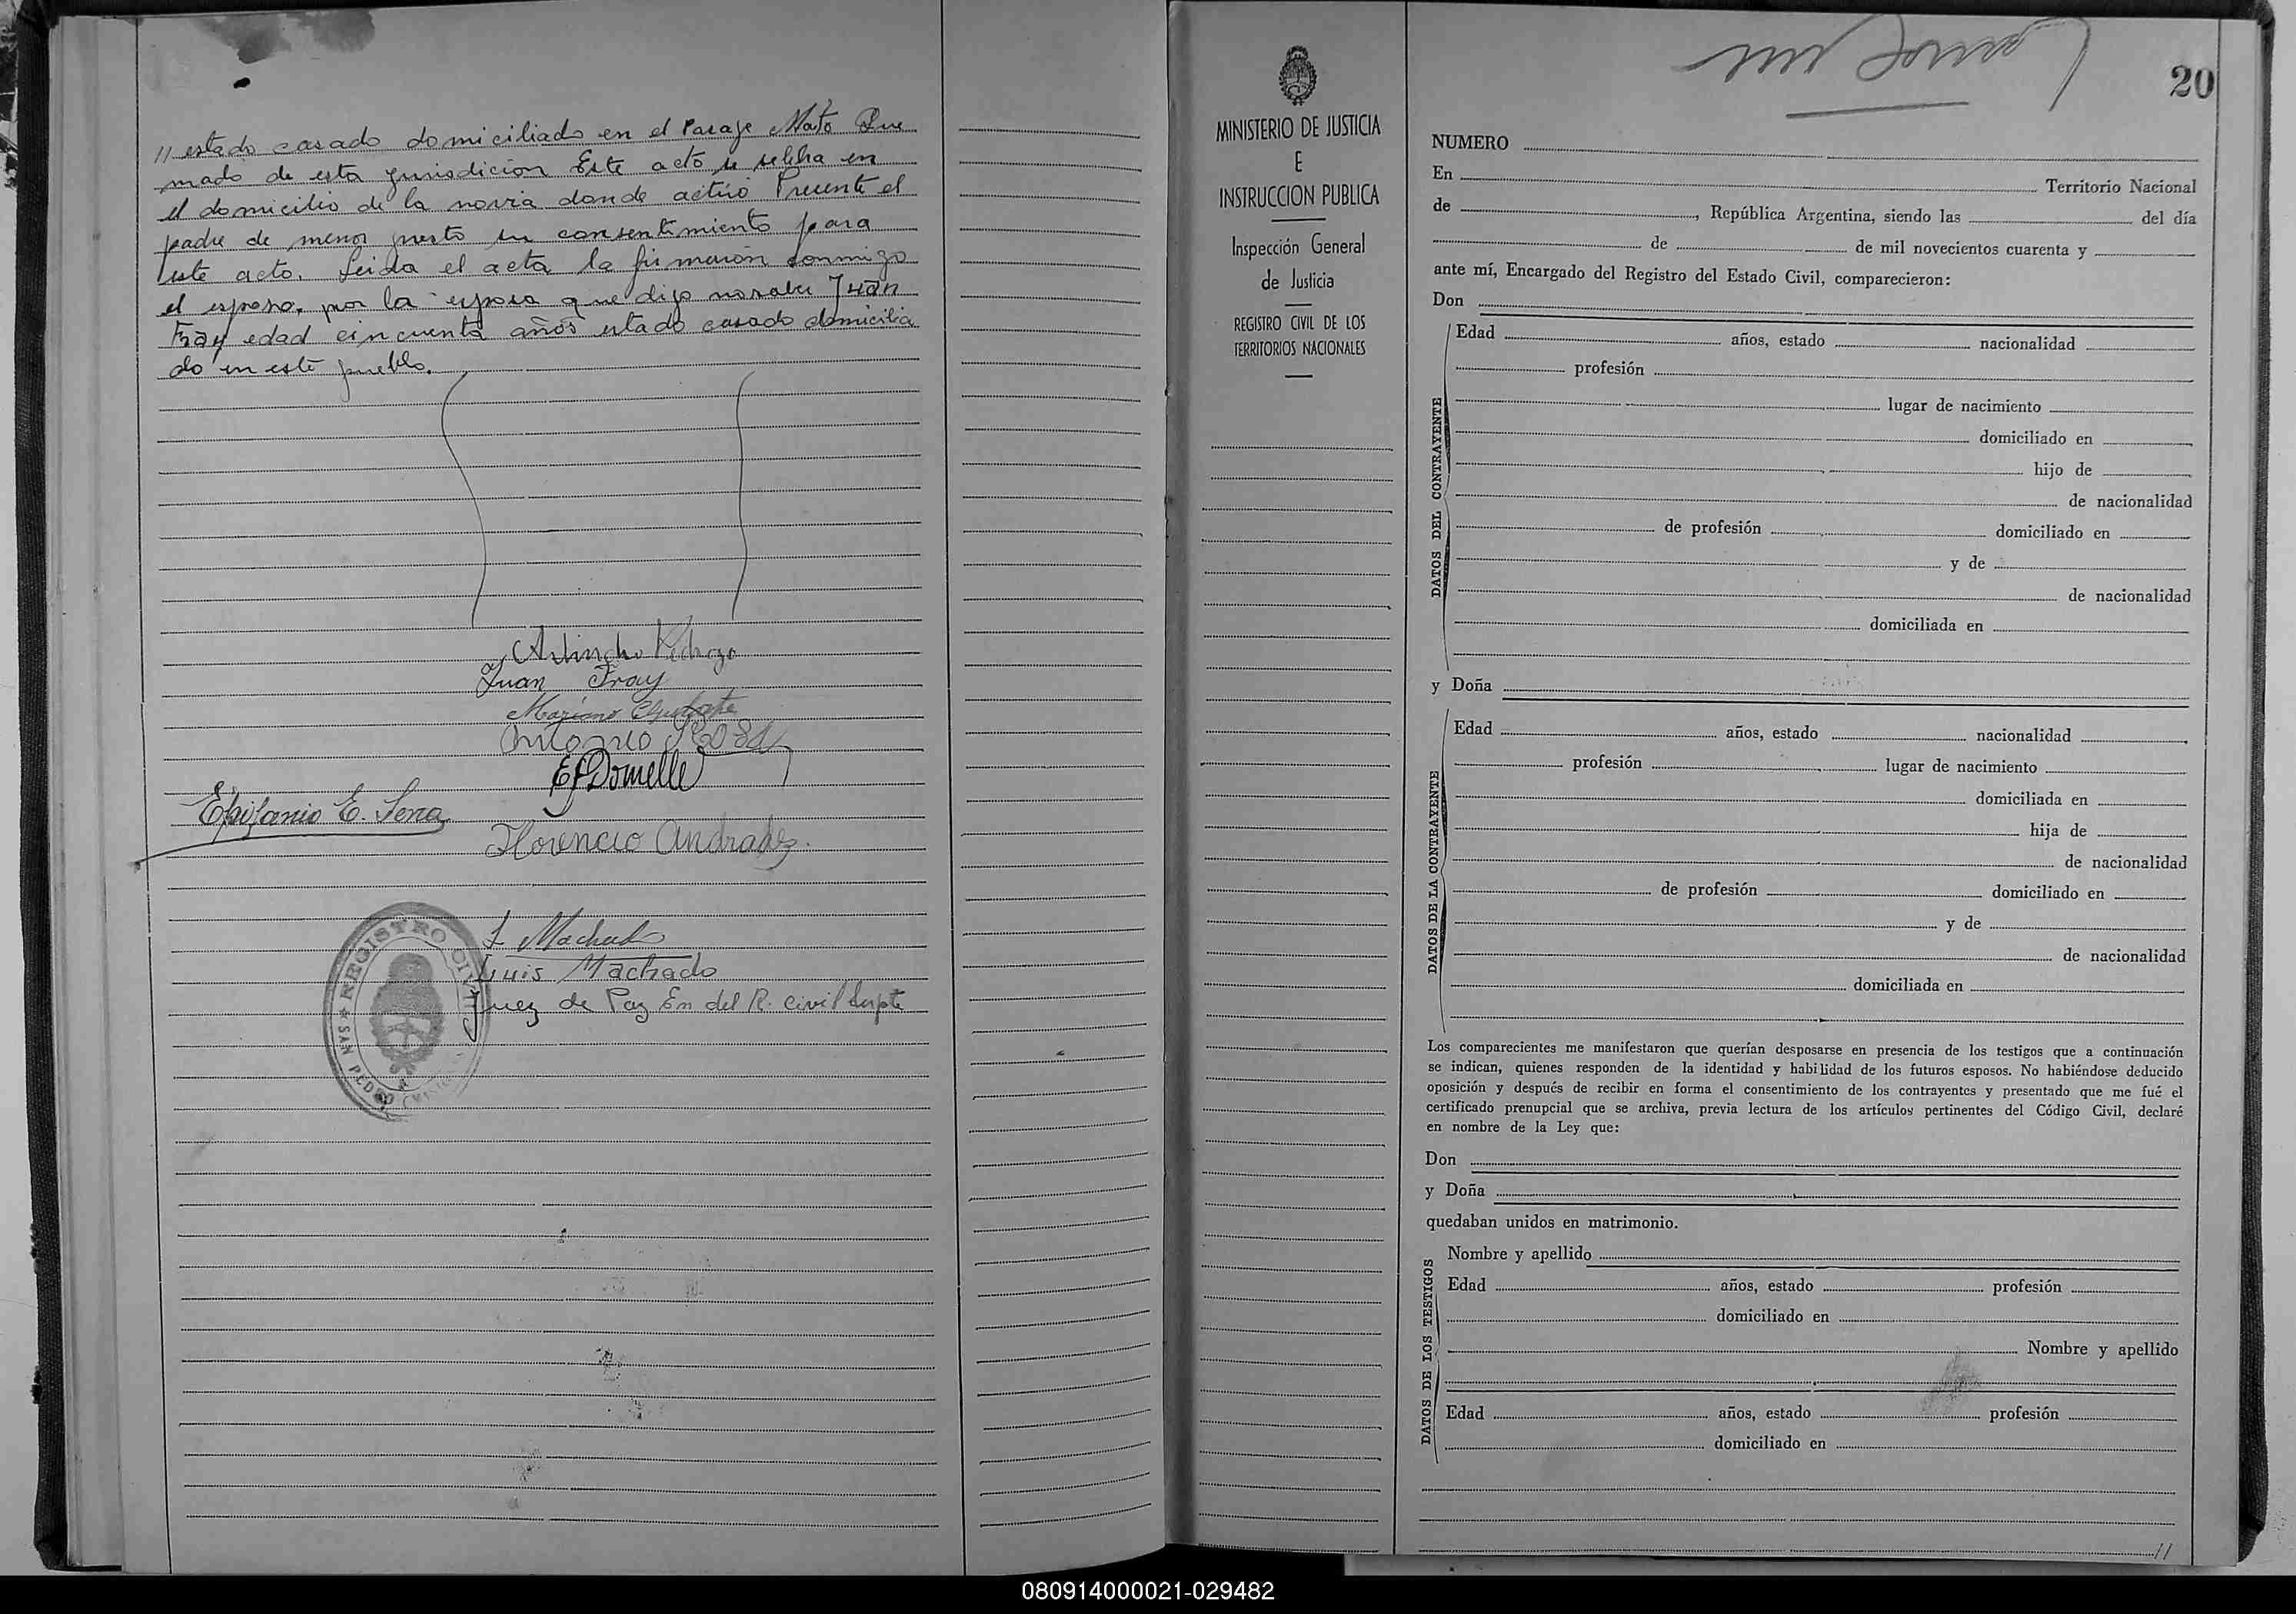 // estado casado domiciliado en el Paraje Mato Que
mado de esta jurisdicion Este acto se selebra en
el domicilio de la novia donde actuo Precente el
padre de menor presto su consentimiento para
este acto. Leida el acta la firmaron conmigo
el esposo, por la esposa que dijo no saber Juan
Fray edad cincuenta años estado casado domicilia
do en este pueblo.
Juan Fray
Mariano
Antonio
Epifanio E. Sena
Florencio Andrade
L Machado
Luis Machado
Juez de Paz En del R. Civil Supte
REGISTRO CIVIL
SAN PEDRO
MINISTERIO DE JUSTICIA
E
INSTRUCCION PUBLICA
Inspección General
de Justicia
REGISTRO CIVIL DE LOS
TERRITORIOS NACIONALES
20
NUMERO
En Territorio Nacional
de , República Argentina, siendo las del día
de de mil novecientos cuarenta y
ante mí, Encargado del Registro del Estado Civil, comparecieron:
Don
DATOS DEL CONTRAYENTE
Edad años, estado nacionalidad
profesión
lugar de nacimiento
domiciliado en
hijo de
de nacionalidad
de profesión domiciliado en
y de
de nacionalidad
domiciliada en
y Doña
DATOS DE LA CONTRAYENTE
Edad años, estado nacionalidad
profesión lugar de nacimiento
domiciliada en
hija de
de nacionalidad
de profesión domiciliado en
y de
de nacionalidad
domiciliada en
Los comparecientes me manifestaron que querían desposarse en presencia de los testigos que a continuación
se indican, quienes responden de la identidad y habilidad de los futuros esposos. No habiéndose deducido
oposición y después de recibir en forma el consentimiento de los contrayentes y presentado que me fué el
certificado prenupcial que se archiva, previa lectura de los artículos pertinentes del Código Civil, declaré
en nombre de la Ley que:
Don
y Doña
quedaban unidos en matrimonio.
DATOS DE LOS TESTIGOS
Nombre y apellido
Edad años, estado profesión
domiciliado en
Nombre y apellido
Edad años, estado profesión
domiciliado en
//
080914000021-029482